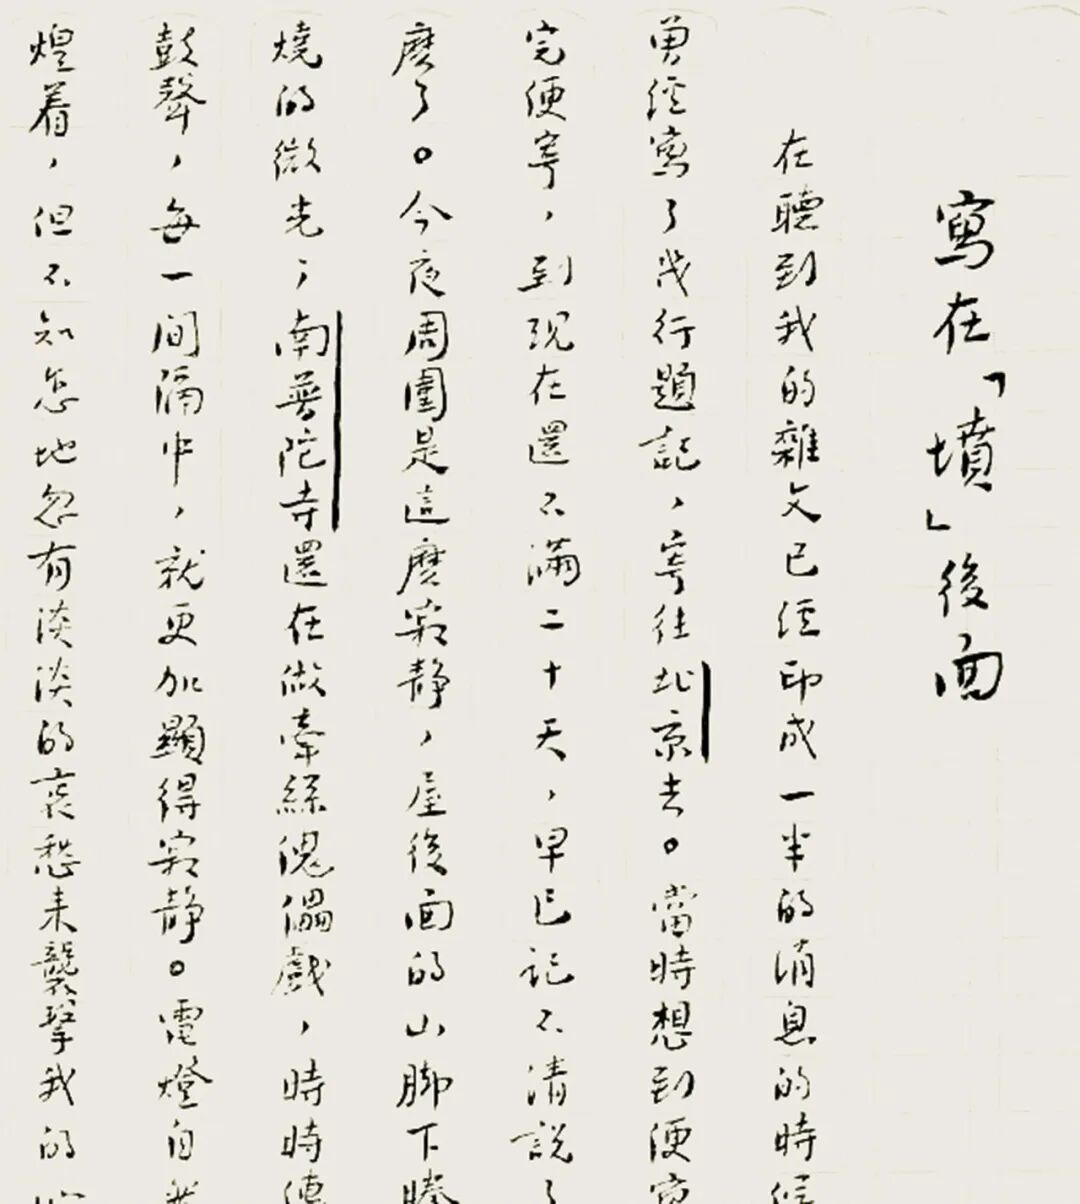 寫在「墳」後面
在聽到我的雜文已經印成一半的消息的時候
曾經寫了幾行題記，寄往北京去。當時想到便寫
完便寄，到現在還不滿二十天，早已記不清說了
麽了。今夜周圍是這麽寂静，屋後面的山脚下騰
燒的微光；南普陀寺還在做牽絲傀儡戲，時時傳
鼓聲，每一間隔中，就更加顯得寂静。電燈自然
煌着，但不知怎地忽有淡淡的哀愁来襲擊我的心